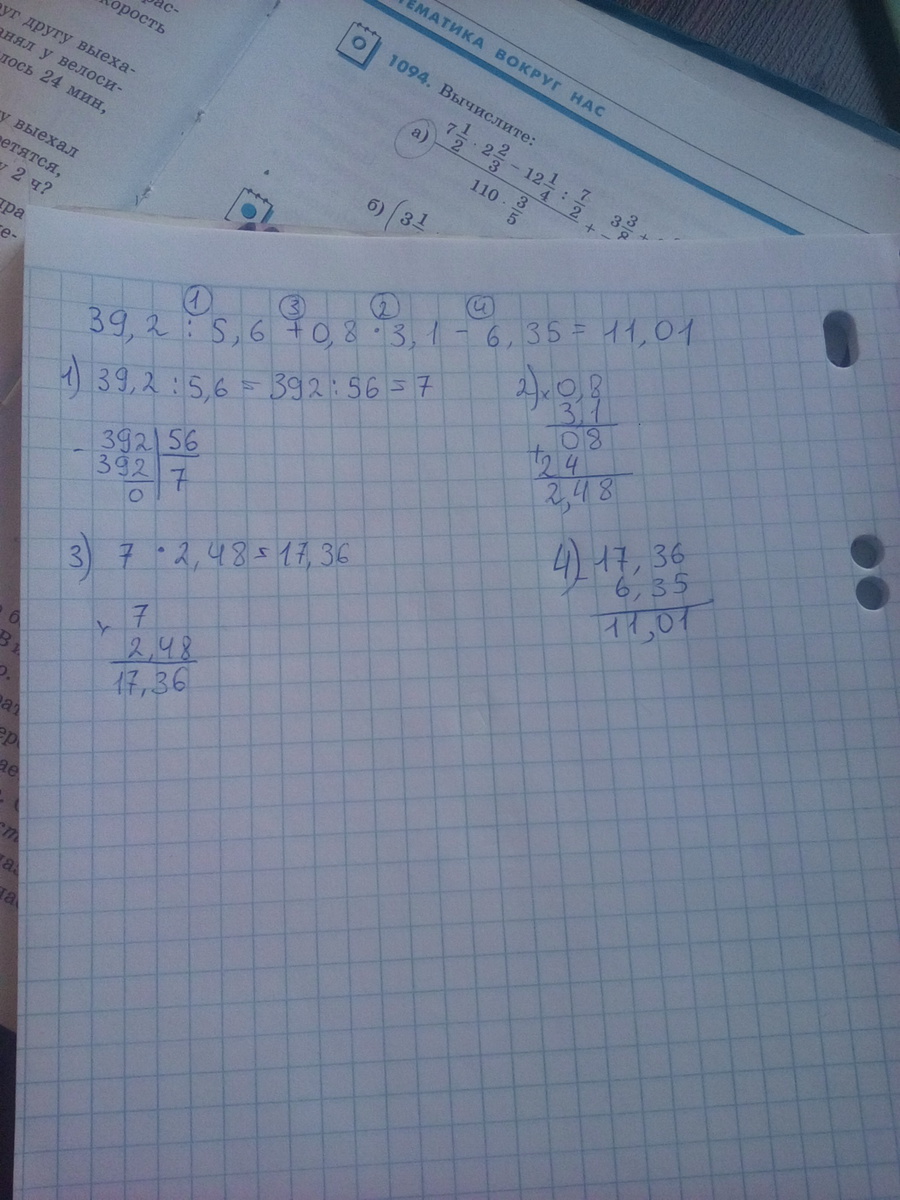 рас-
корость
уг другу выеха-
анял у велоси-
лось 24 мин,
у выехал
ретятся,
у 2 ч?
ТЕМАТИКА ВОКРУГ НАС
1094. Вычислите:
а) (7 1/2 · 2 2/3 − 12 1/4 : 7/2) / (110 · 3/5) +
3 3/8 +
б) (3 1/
① ③ ② ④
39,2 : 5,6 + 0,8 · 3,1 − 6,35 = 11,01
1) 39,2 : 5,6 = 392 : 56 = 7
− 392 | 56
392 | 7
0
2) × 0,8
3,1
+ 08
24
2,48
3) 7 · 2,48 = 17,36
× 7
2,48
17,36
4) − 17,36
6,35
11,01